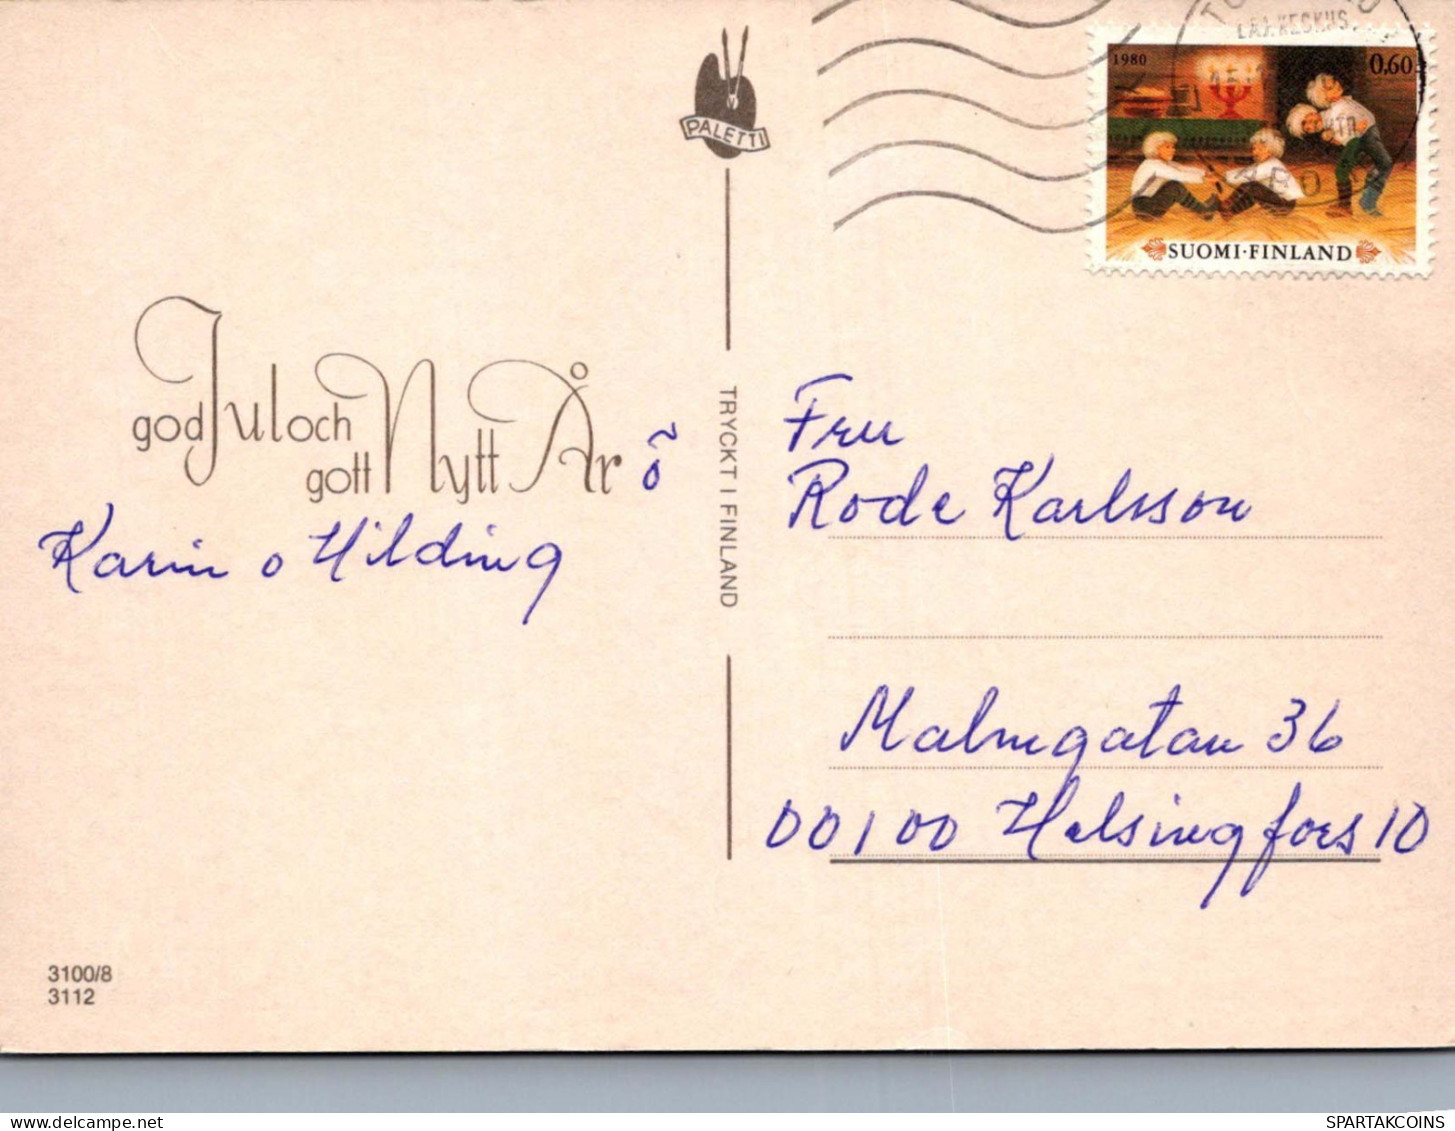 PALETTI
1980
0,60
LAJ.KESKUS.
SUOMI·FINLAND
god Jul och
gott Nytt År õ
Karin o Hilding
TRYCKT I FINLAND
Fru
Rode Karlsson
Malmgatan 36
00100 Helsingfors 10
3100/8
3112
SPARTAKCOINS